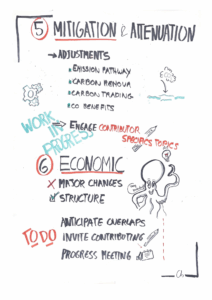 5 MITIGATION & ATTENUATION
→ ADJUSTMENTS
EMISSION PATHWAY
CARBON REMOVA
CARBON TRADING
CO BENEFITS
WORK IN PROGRESS
→ ENGAGE CONTRIBUTOR
SPECIFICS TOPICS
6 ECONOMIC
X MAJOR CHANGES
☑ STRUCTURE
TO DO
ANTICIPATE OVERLAPS
INVITE CONTRIBUTING
PROGRESS MEETING